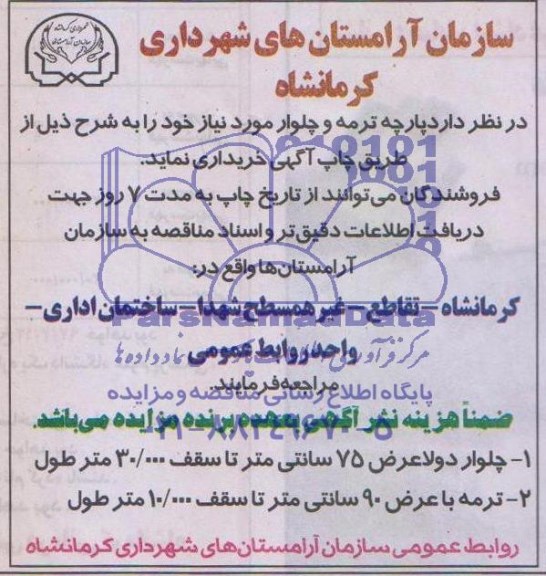 سازمان آرامستان های شهرداری
کرمانشاه
در نظر دارد پارچه ترمه و چلوار مورد نیاز خود را به شرح ذیل از
طریق چاپ آگهی خریداری نماید.
فروشندگان می‌توانند از تاریخ چاپ به مدت ۷ روز جهت
دریافت اطلاعات دقیق‌تر و اسناد مناقصه به سازمان
آرامستان‌ها واقع در:
کرمانشاه – تقاطع – غیر همسطح شهدا – ساختمان اداری –
ParsNamadData
واحد روابط عمومی
مراجعه فرمایند.
پایگاه اطلاع رسانی مناقصه و مزایده
ضمناً هزینه نشر آگهی به عهده برنده مزایده می‌باشد.
۱- چلوار دولا عرض ۷۵ سانتی متر تا سقف ۳۰/۰۰۰ متر طول
۲- ترمه با عرض ۹۰ سانتی متر تا سقف ۱۰/۰۰۰ متر طول
روابط عمومی سازمان آرامستان‌های شهرداری کرمانشاه